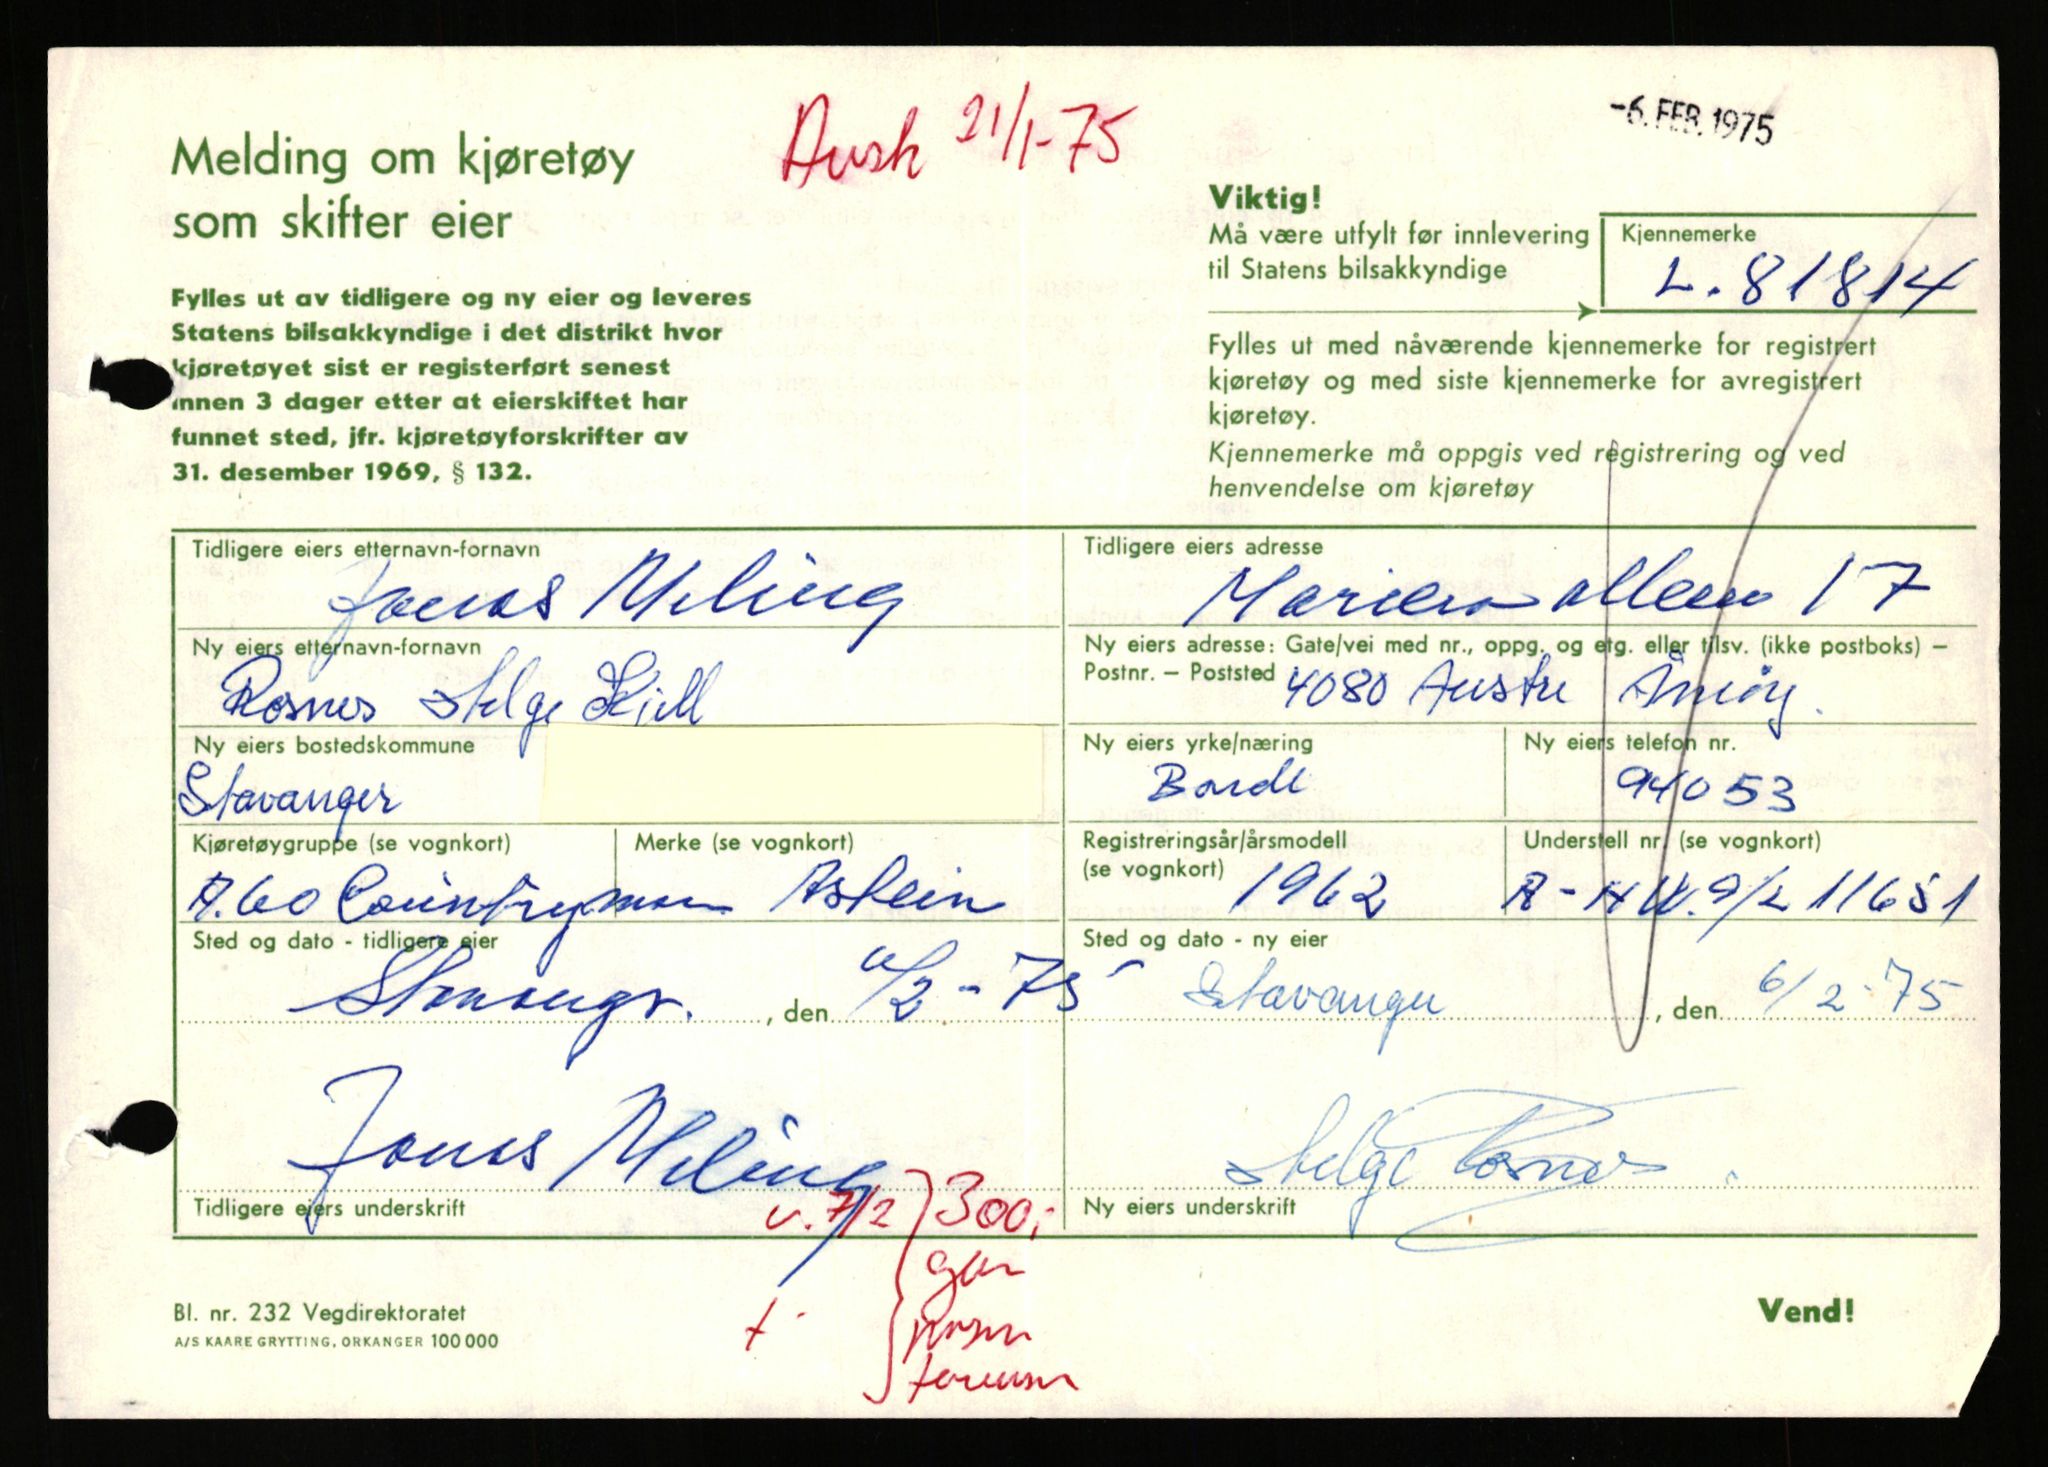 Avsk 21/1-75
-6. FEB. 1975
Melding om kjøretøy
som skifter eier
Fylles ut av tidligere og ny eier og leveres
Statens bilsakkyndige i det distrikt hvor
kjøretøyet sist er registerført senest
innen 3 dager etter at eierskiftet har
funnet sted, jfr. kjøretøyforskrifter av
31. desember 1969, § 132.
Viktig!
Må være utfylt før innlevering
til Statens bilsakkyndige
Kjennemerke
L. 81814
Fylles ut med nåværende kjennemerke for registrert
kjøretøy og med siste kjennemerke for avregistrert
kjøretøy.
Kjennemerke må oppgis ved registrering og ved
henvendelse om kjøretøy
Tidligere eiers etternavn-fornavn
Jonas Meling
Tidligere eiers adresse
alleen 17
Ny eiers etternavn-fornavn
Rosnes Helge Kjell
Ny eiers adresse: Gate/vei med nr., oppg. og etg. eller tilsv. (ikke postboks) –
Postnr. – Poststed 4080 Austre Åmøy.
Ny eiers bostedskommune
Stavanger
Ny eiers yrke/næring
Ny eiers telefon nr.
94053
Kjøretøygruppe (se vognkort)
A.60 Countryman
Merke (se vognkort)
Astein
Registreringsår/årsmodell
(se vognkort)
1962
Understell nr. (se vognkort)
A-HW.9/2 11651
Sted og dato - tidligere eier
Stavanger. , den 6/2-75
Sted og dato - ny eier
Stavanger , den 6/2-75
Jonas Meling
Tidligere eiers underskrift
Helge Rosnes.
Ny eiers underskrift
v. 7/2 300,-
Bl. nr. 232 Vegdirektoratet
A/S KAARE GRYTTING, ORKANGER 100 000
Vend!